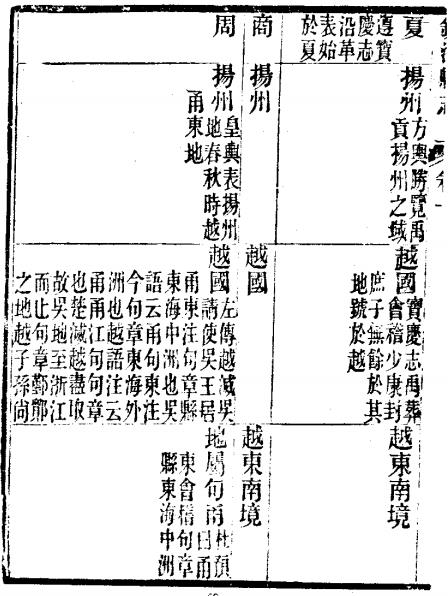 夏
遵寶
慶志
沿革
表始
於夏
揚州
方輿勝覽禹
貢揚州之域
越國
寶慶志禹葬
會稽少康封
庶子無餘於其
地號於越
越東南境
商
揚州
越國
越東南境
周
揚州
皇輿表揚州
地春秋時越
甬東地
越國
左傳越滅吳
請使吳王居
甬東注句章縣
東海中洲也吳
語云甬句東注
今句章東海外
洲也越語注云
甬甬江句句章
也楚滅越盡取
故吳地至浙江
而止句章鄞鄮
之地越子孫尚
地屬句甬
杜預
曰甬
東會稽句章
縣東海中洲